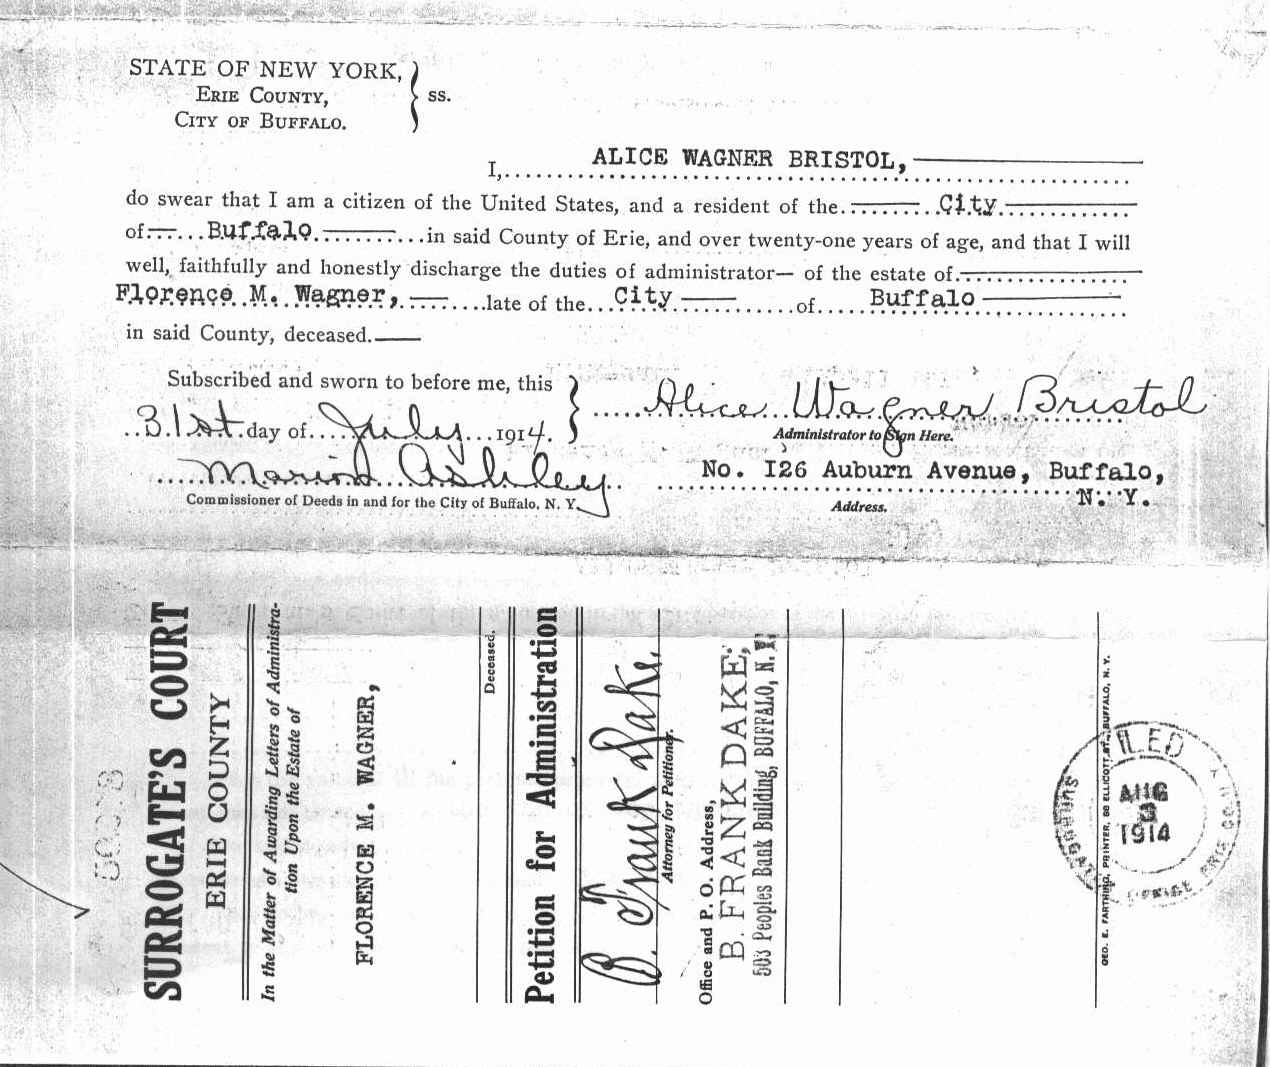 STATE OF NEW YORK,
ERIE COUNTY, } ss.
CITY OF BUFFALO.
I, ALICE WAGNER BRISTOL,
do swear that I am a citizen of the United States, and a resident of the City
of Buffalo in said County of Erie, and over twenty-one years of age, and that I will
well, faithfully and honestly discharge the duties of administrator— of the estate of
Florence M. Wagner, late of the City of Buffalo
in said County, deceased.
Subscribed and sworn to before me, this
31st day of July 1914.
Alice Wagner Bristol
Administrator to Sign Here.
Ashley
Commissioner of Deeds in and for the City of Buffalo, N. Y.
No. 126 Auburn Avenue, Buffalo,
N. Y.
Address.
SURROGATE'S COURT
ERIE COUNTY
In the Matter of Awarding Letters of Administra-
tion Upon the Estate of
FLORENCE M. WAGNER,
Deceased.
Petition for Administration
B. Frank Dake,
Attorney for Petitioner.
Office and P. O. Address,
B. FRANK DAKE,
503 Peoples Bank Building, BUFFALO, N. Y.
GEO. E. FARTHING, PRINTER, 98 ELLICOTT ST., BUFFALO, N. Y.
FILED
AUG
3
1914
SURROGATE'S OFFICE ERIE CO.